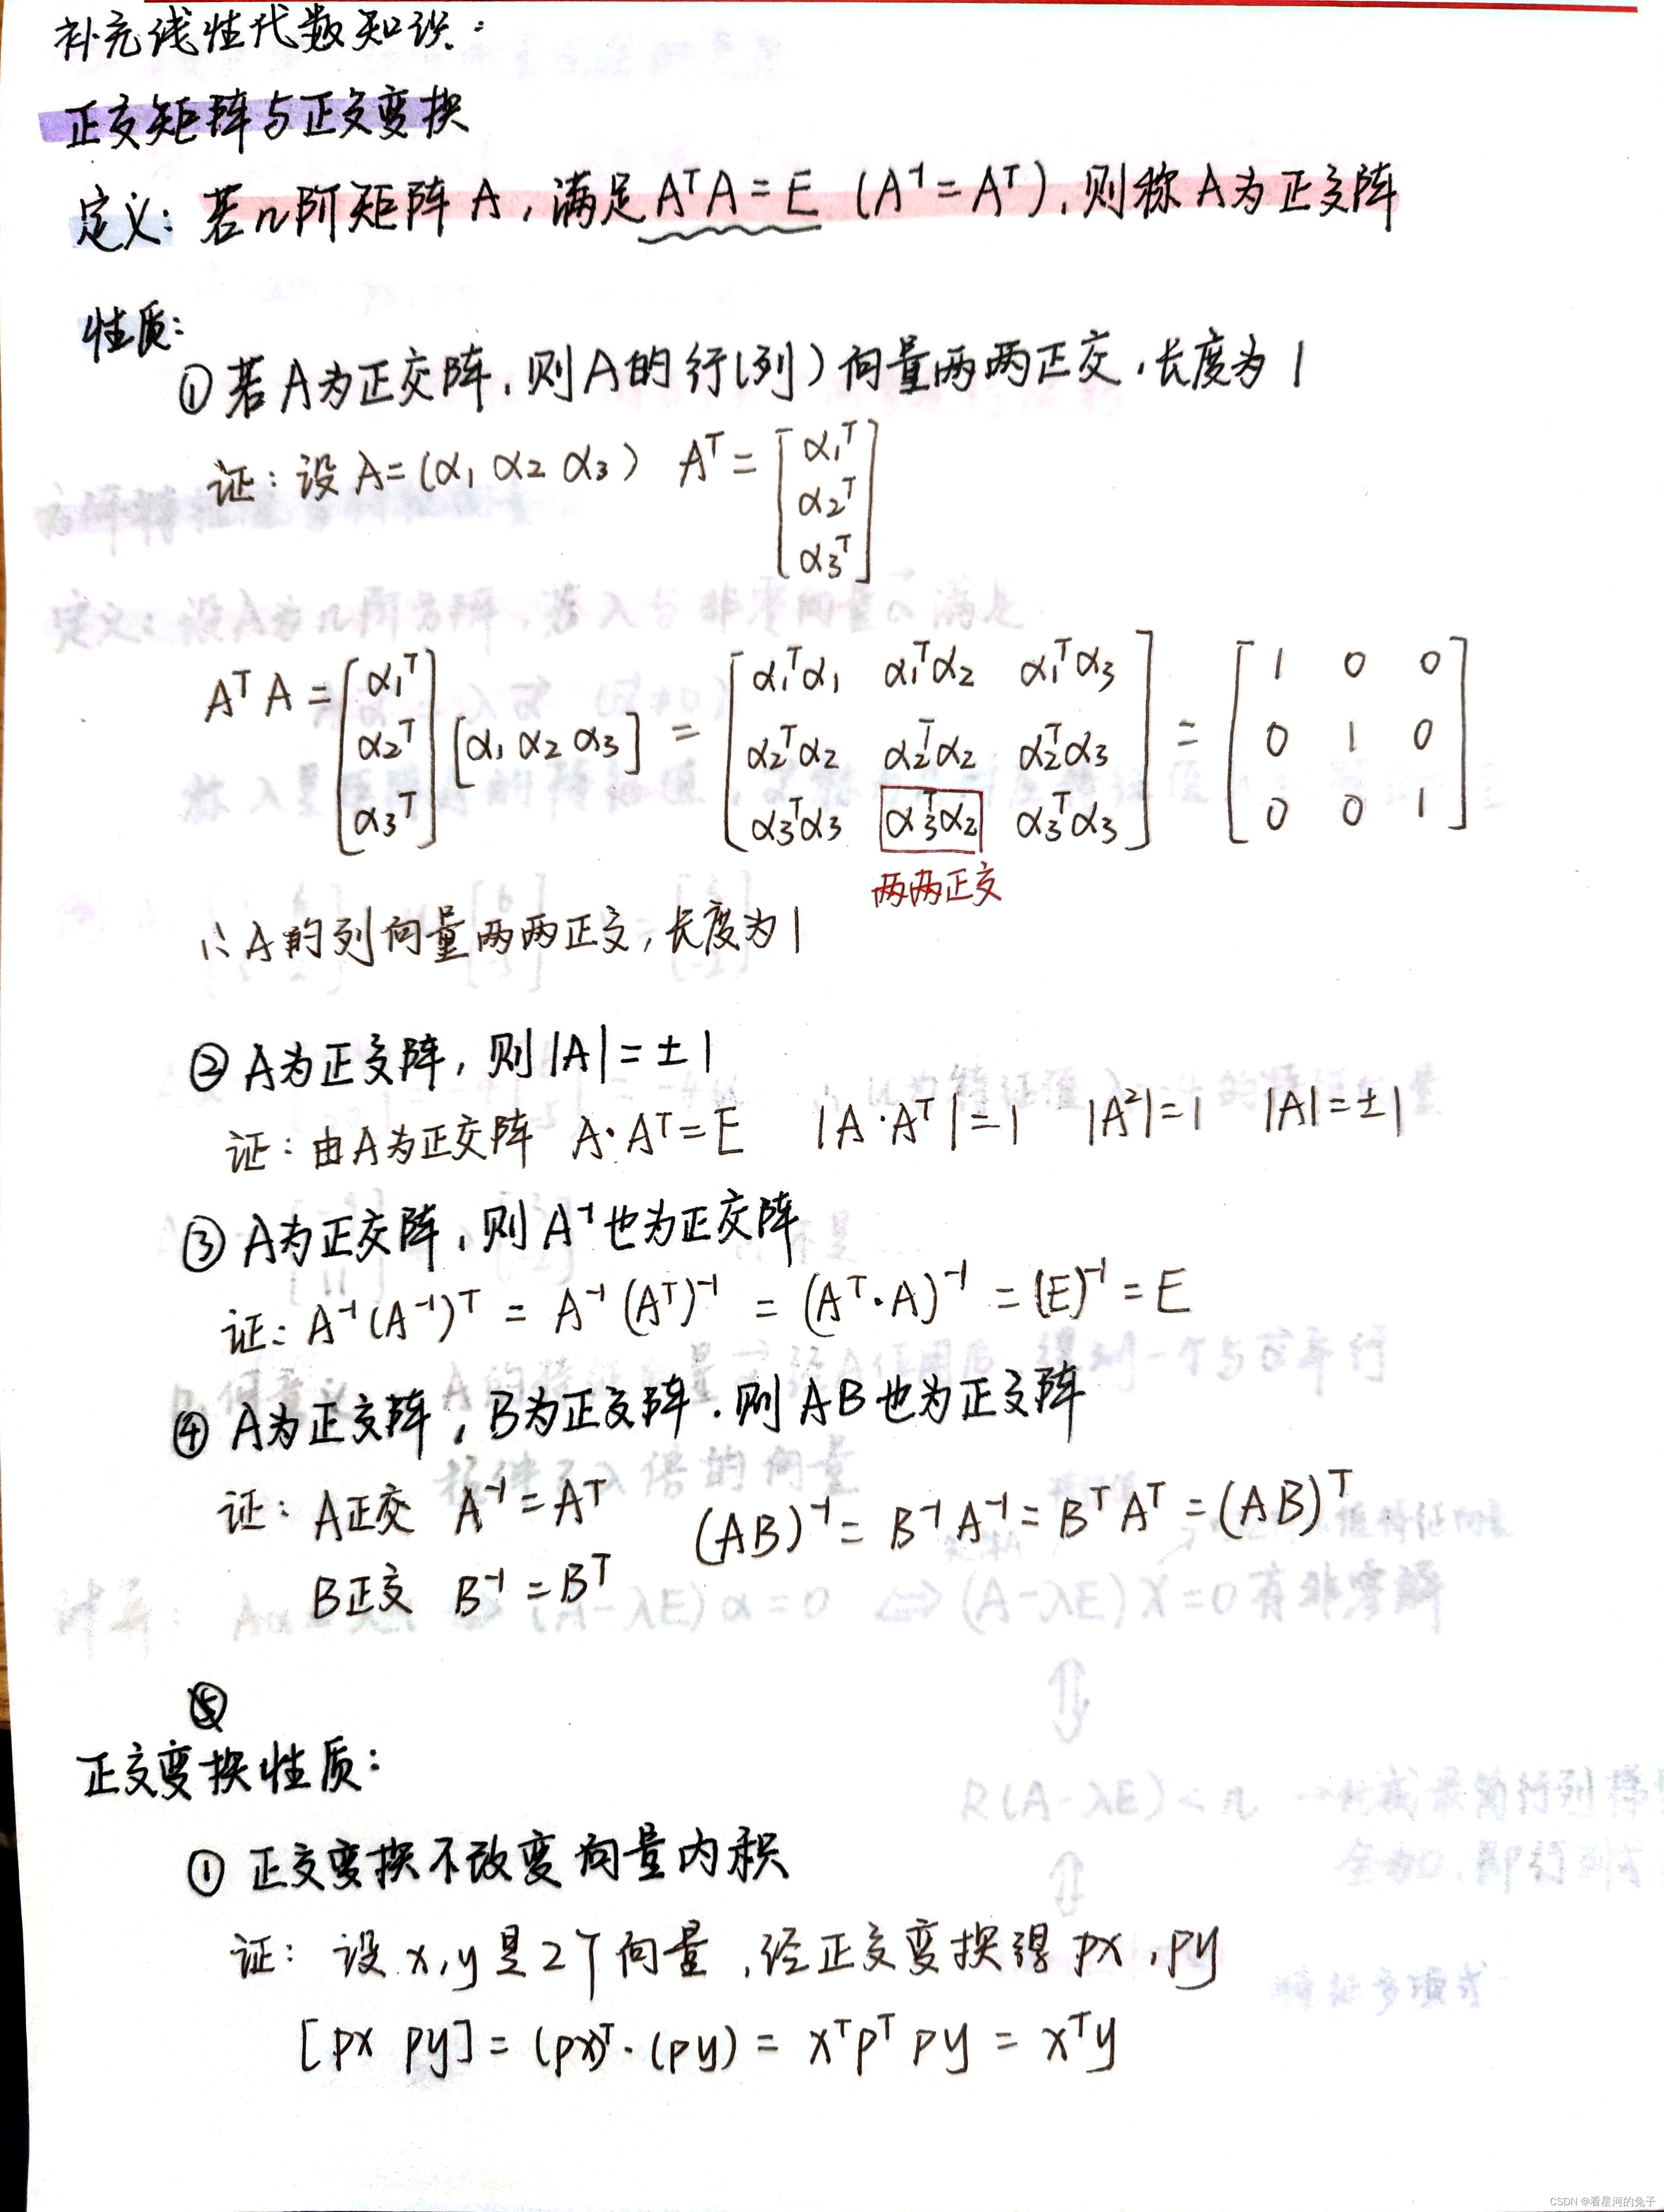 补充线性代数知识:
正交矩阵与正交变换
定义: 若n阶矩阵A, 满足 AᵀA = E (A⁻¹ = Aᵀ), 则称A为正交阵
性质:
① 若A为正交阵, 则A的行(列)向量两两正交, 长度为1
证: 设A=(α₁ α₂ α₃) Aᵀ = [α₁ᵀ α₂ᵀ α₃ᵀ]
AᵀA = [α₁ᵀ α₂ᵀ α₃ᵀ] [α₁ α₂ α₃] = [α₁ᵀα₁ α₁ᵀα₂ α₁ᵀα₃
α₂ᵀα₂ α₂ᵀα₂ α₂ᵀα₃
α₃ᵀα₃ α₃ᵀα₂ α₃ᵀα₃] = [1 0 0
0 1 0
0 0 1]
两两正交
∴ A的列向量两两正交, 长度为1
② A为正交阵, 则|A| = ±1
证: 由A为正交阵 A·Aᵀ=E |A·Aᵀ|=1 |A²|=1 |A|=±1
③ A为正交阵, 则A⁻¹也为正交阵
证: A⁻¹(A⁻¹)ᵀ = A⁻¹(Aᵀ)⁻¹ = (Aᵀ·A)⁻¹ = (E)⁻¹ = E
④ A为正交阵, B为正交阵. 则AB也为正交阵
证: A正交 A⁻¹ = Aᵀ (AB)⁻¹ = B⁻¹A⁻¹ = BᵀAᵀ = (AB)ᵀ
B正交 B⁻¹ = Bᵀ
⑤
正交变换性质:
① 正交变换不改变向量内积
证: 设x,y是2个向量, 经正交变换得 px, py
[px py] = (px)ᵀ·(py) = xᵀpᵀpy = xᵀy
CSDN @看星河的兔子